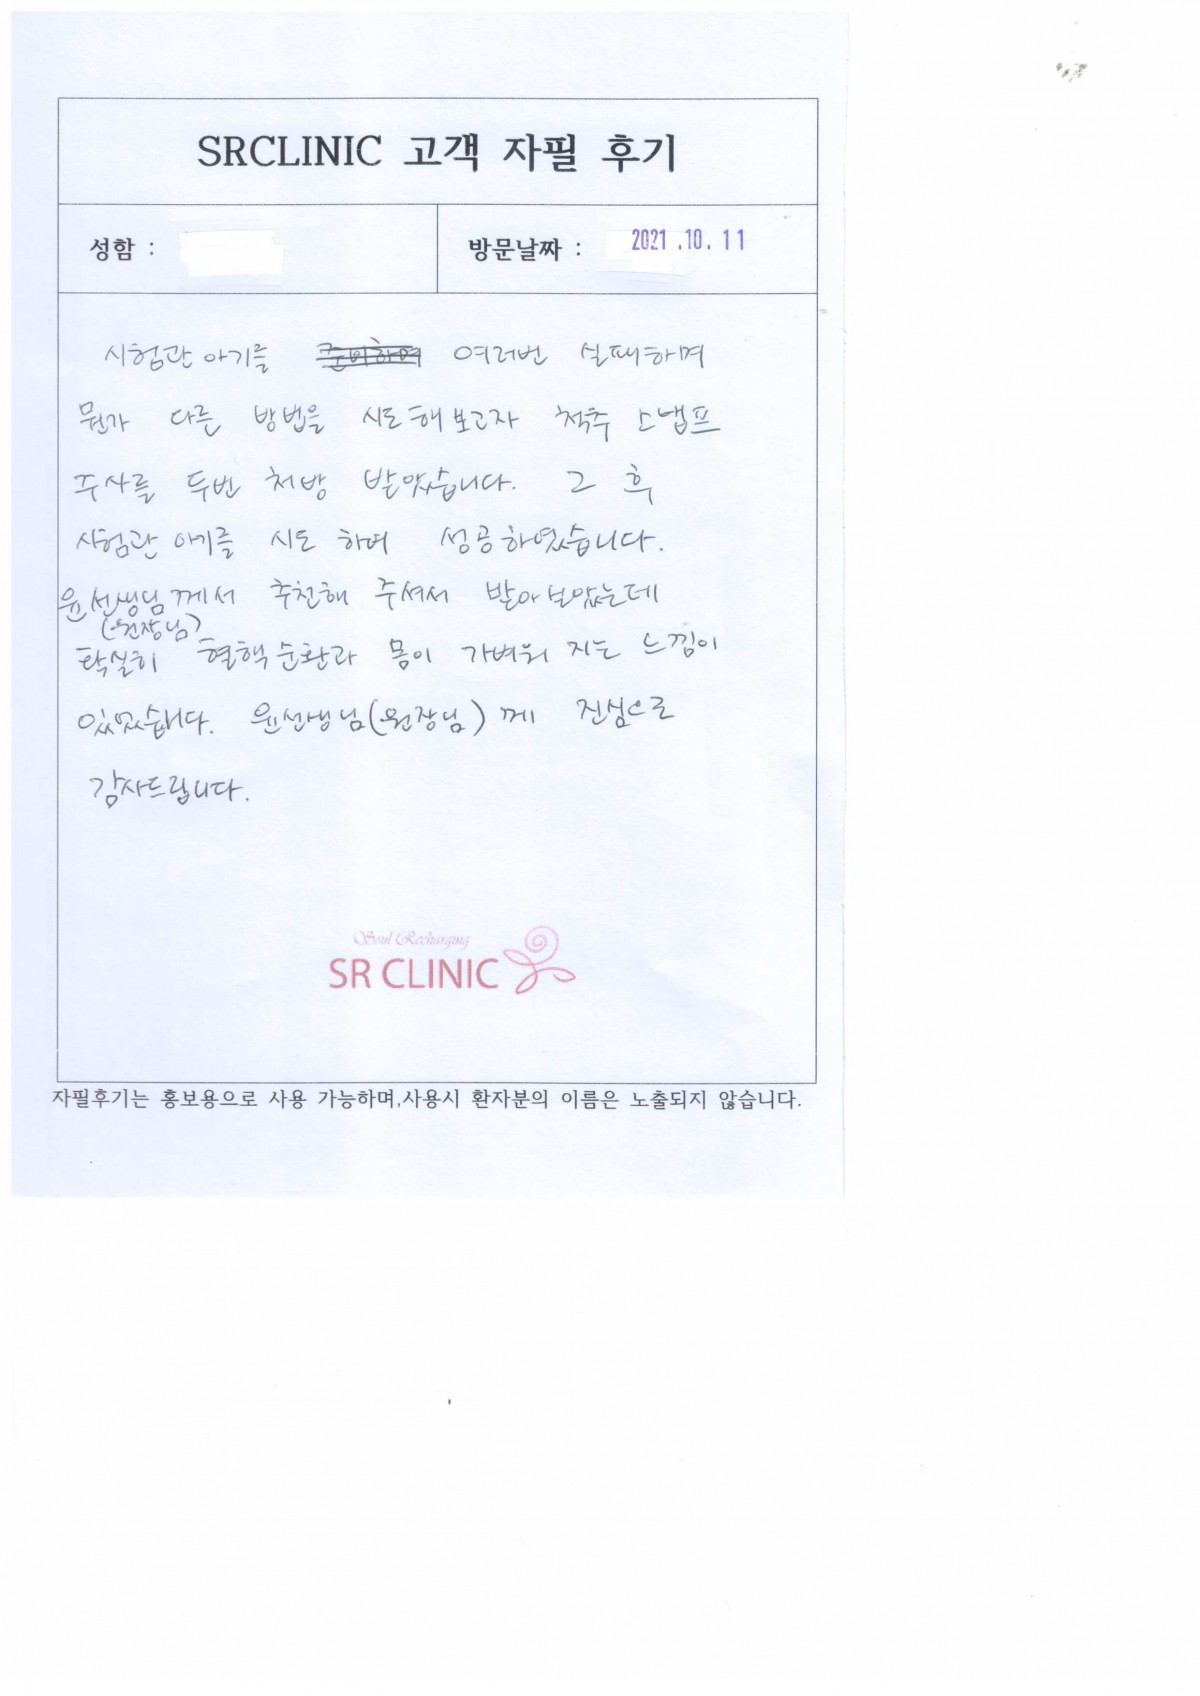 SRCLINIC 고객 자필 후기
성함 :
방문날짜 : 2021.10.11
시험관 아기를 준비하며 여러번 실패하며
뭔가 다른 방법을 시도해보고자 척추 스냅프
주사를 두번 처방 받았습니다. 그 후
시험관 아기를 시도 하여 성공하였습니다.
윤선생님께서 추천해 주셔서 받아보았는데
(원장님)
확실히 혈핵순환과 몸이 가벼워 지는 느낌이
있었습니다. 윤선생님(원장님)께 진심으로
감사드립니다.
Soul Recharging
SR CLINIC
자필후기는 홍보용으로 사용 가능하며,사용시 환자분의 이름은 노출되지 않습니다.